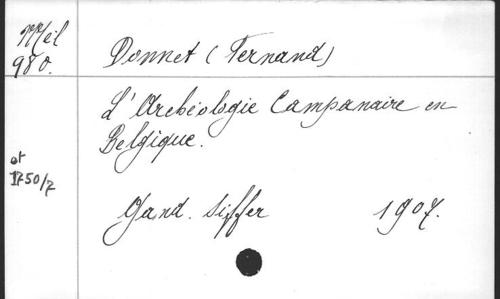 Meil
980.
Donnet (Fernand)
L'Archéologie Campanaire en
Belgique.
et
1750/7
Gand. Siffer 1907.